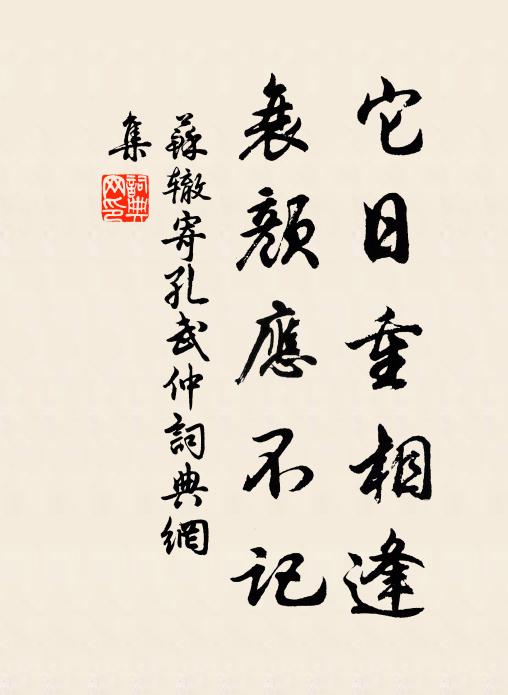 它日重相逢
衰顏應不記
蘇轍寄孔武仲詞典網
集
詞典
网印